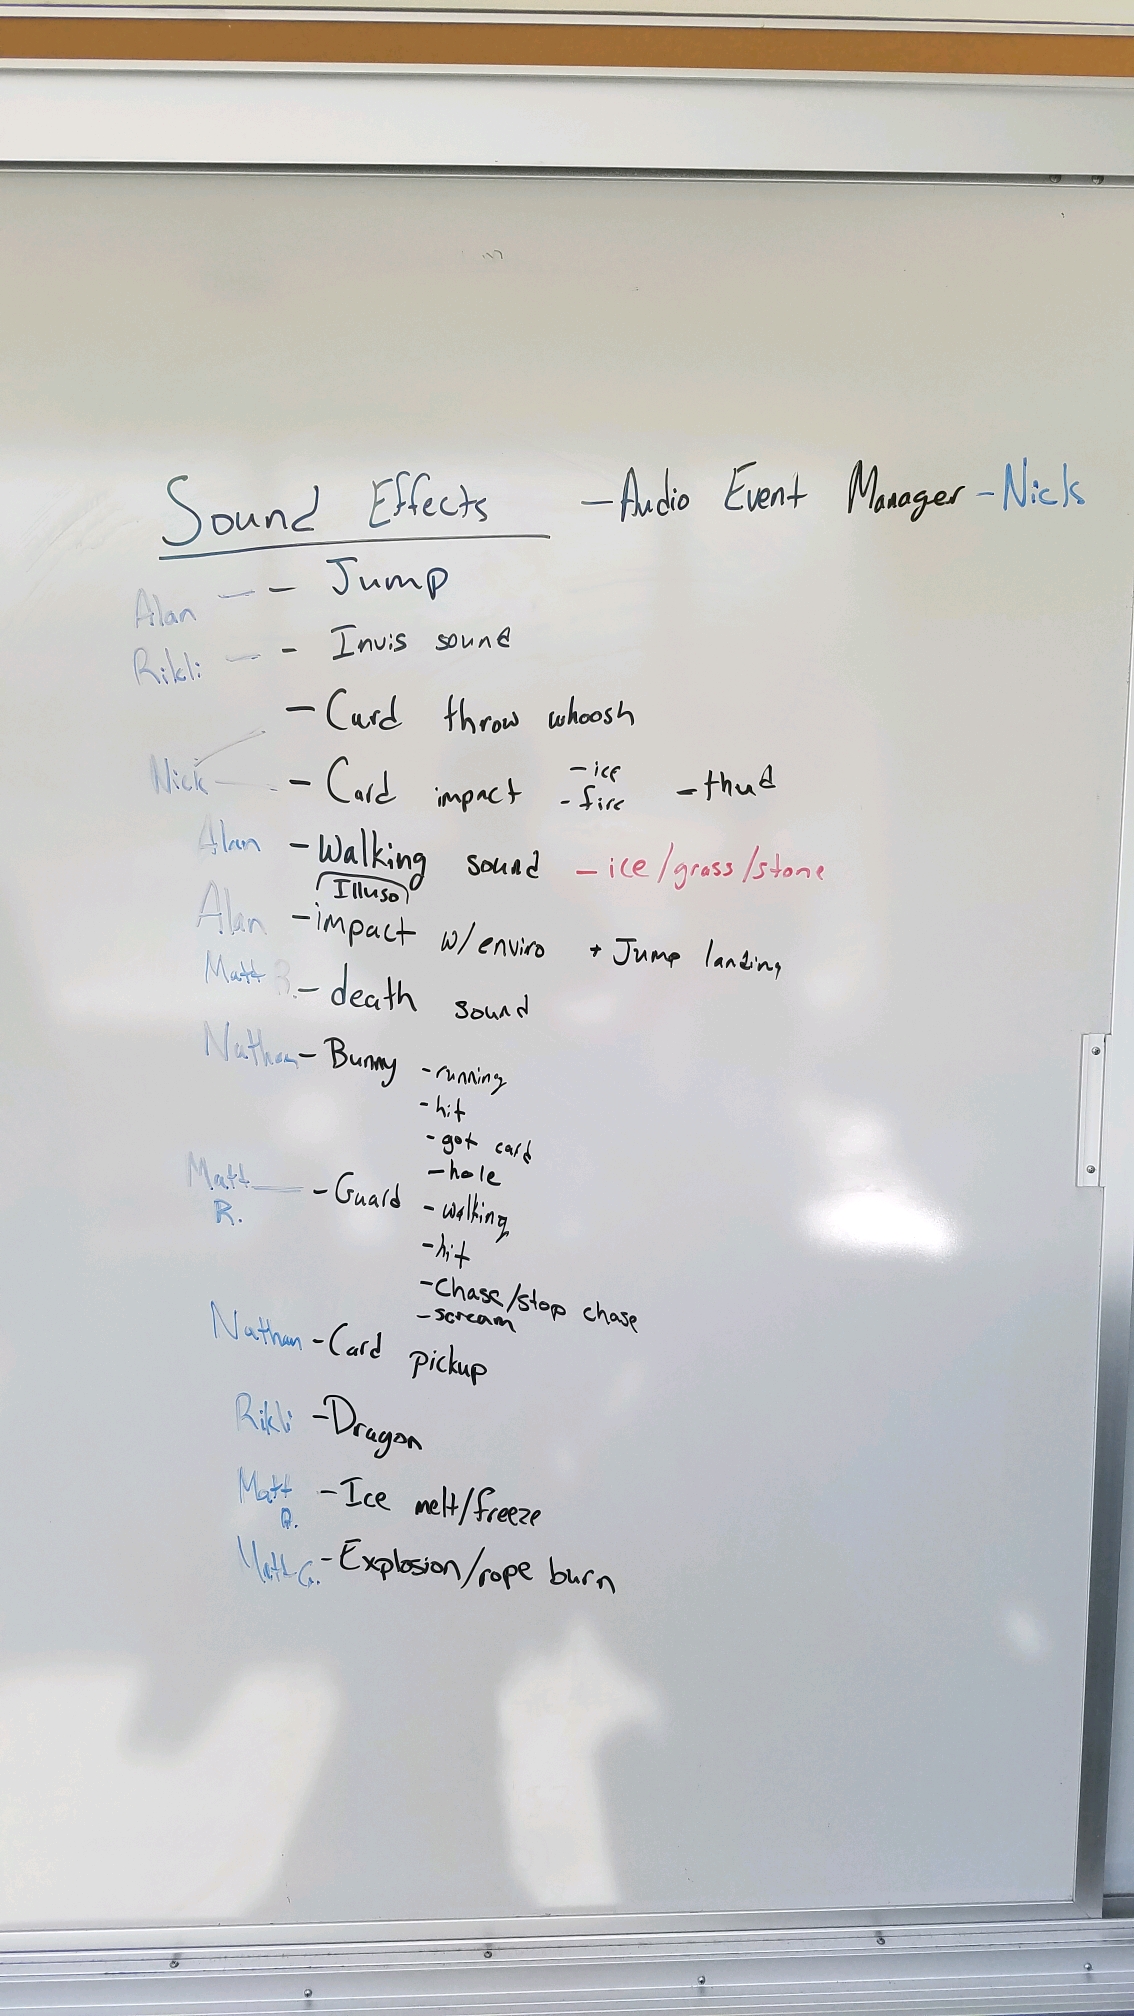 Sound Effects - Audio Event Manager - Nick
Alan - - Jump
Rikli - - Invis sound
- Card throw whoosh
Nick - Card impact - ice - fire - thud
Alan - Walking sound - ice/grass/stone
(Illuso)
Alan - impact w/enviro + Jump landing
Matt - death sound
Nathan - Bunny - running
- hit
- got card
- hole
Matt R. - Guard - walking
- hit
- Chase/stop chase
- scream
Nathan - Card pickup
Rikli - Dragon
Matt - Ice melt/freeze
Matt G. - Explosion/rope burn